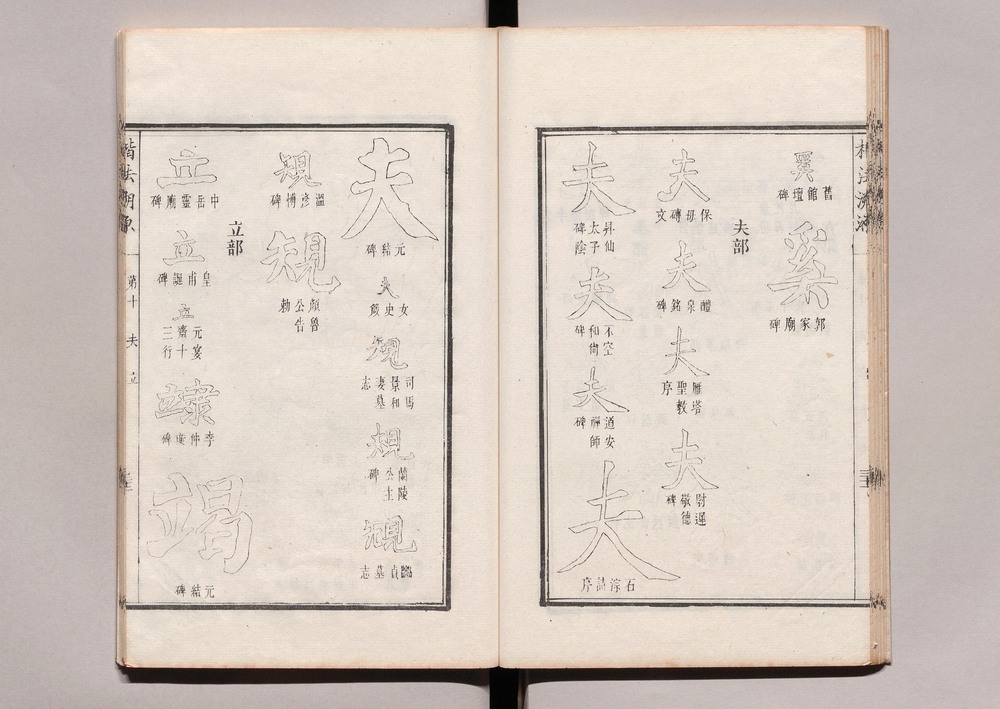 奚
舊館壇碑
奚
郭家廟碑
夫部
夫
保母磚文
夫
醴泉銘碑
夫
雁塔聖教序
夫
尉遲敬德碑
夫
昇仙太子碑陰
夫
不空和尚碑
夫
道安禪師碑
夫
石淙詩序
夫
元結碑
夫
女史箴
規
司馬景和妻墓志
規
蘭陵公主碑
規
臨貞墓志
規
溫彥博碑
規
顏魯公告勅
立部
立
中岳靈廟碑
立
皇甫誕碑
立
元宴齋三十行
李仲璇碑
竭
元結碑
楷法溯源
第十
夫
立